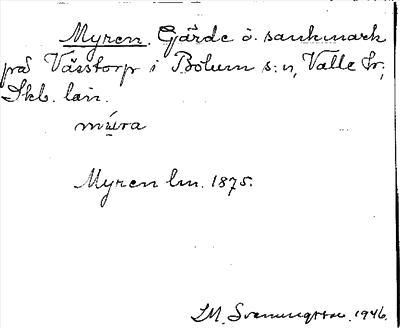 Myren. Gärde o. sankmark
på Västtorp i Bolum s:n, Valle hr,
Skb. län.
múra
Myren lm. 1875.
S.M. Svenungsson. 1946.